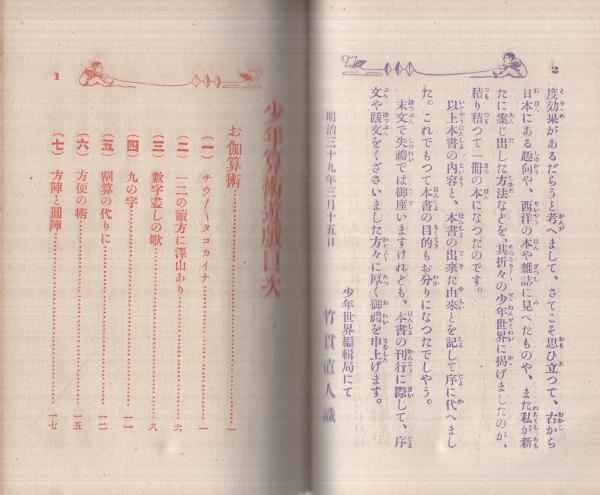 2
度効果があるだらうと考へまして、さてこそ思ひ立つて、古から
日本にある趣向や、西洋の本や雑誌に見へたものや、また私が新
たに案じ出した方法などを、其折々の少年世界に掲げましたのが、
積り積つて一冊の本になつたのです。
以上本書の内容と、本書の出來た由來とを記して序に代へまし
た。これでもつて本書の目的もお分りになつたでしやう。
末文で失禮では御座いますけれども、本書の刊行に際して、序
文や跋文をくださいました方々に厚く御禮を申上げます。
明治三十九年三月十五日
少年世界編輯局にて
竹貫直人識
1
少年算術遊戯目次
お伽算術……一
(一) チウ〳〵タコカイナ……一
(二) 一二の頭方に澤山あり……六
(三) 數字盡しの歌……八
(四) 九の字……一一
(五) 割算の代りに……一二
(六) 方便の術……一五
(七) 方陣と圓陣……一七